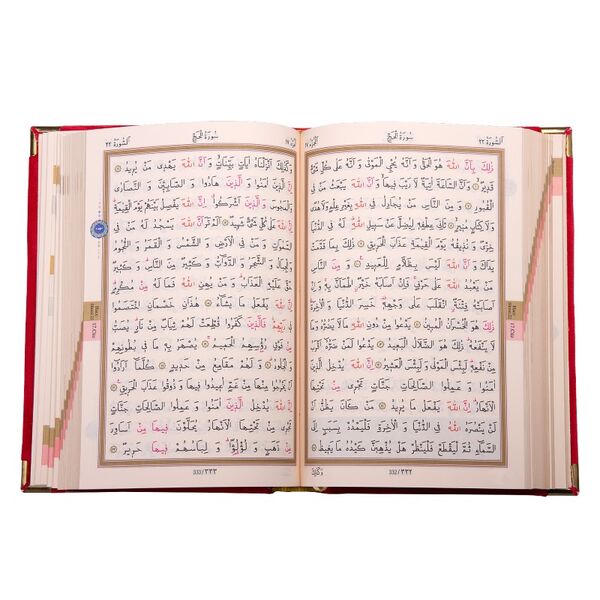 اَلسُّورَةُ ٢٢
سُورَةُ الْحَجِّ
اَلْجُزْءُ ١٧
ذٰلِكَ بِاَنَّ اللّٰهَ هُوَ الْحَقُّ وَ اَنَّهُ يُحْيِ الْمَوْتٰى وَ اَنَّهُ عَلٰى كُلِّ شَيْءٍ
قَدِيرٌ ۝ وَ اَنَّ السَّاعَةَ اٰتِيَةٌ لَا رَيْبَ فِيهَا وَ اَنَّ اللّٰهَ يَبْعَثُ مَنْ فِي
الْقُبُورِ ۝ وَ مِنَ النَّاسِ مَنْ يُجَادِلُ فِي اللّٰهِ بِغَيْرِ عِلْمٍ وَلَا هُدًى
وَلَا كِتَابٍ مُنِيرٍ ۝ ثَانِيَ عِطْفِهِ لِيُضِلَّ عَنْ سَبِيلِ اللّٰهِ لَهُ فِي الدُّنْيَا
خِزْيٌ وَ نُذِيقُهُ يَوْمَ الْقِيٰمَةِ عَذَابَ الْحَرِيقِ ۝ ذٰلِكَ بِمَا قَدَّمَتْ
يَدَاكَ وَ اَنَّ اللّٰهَ لَيْسَ بِظَلَّامٍ لِلْعَبِيدِ ۝ وَ مِنَ النَّاسِ
مَنْ يَعْبُدُ اللّٰهَ عَلٰى حَرْفٍ فَاِنْ اَصَابَهُ خَيْرٌ اطْمَاَنَّ بِهِ وَ اِنْ
اَصَابَتْهُ فِتْنَةٌ انْقَلَبَ عَلٰى وَجْهِهِ خَسِرَ الدُّنْيَا وَ الْاٰخِرَةَ
ذٰلِكَ هُوَ الْخُسْرَانُ الْمُبِينُ ۝ يَدْعُوا مِنْ دُونِ اللّٰهِ مَا لَا يَضُرُّهُ وَ مَا
لَا يَنْفَعُهُ ذٰلِكَ هُوَ الضَّلَالُ الْبَعِيدُ ۝ يَدْعُوا لَمَنْ ضَرُّهُ اَقْرَبُ
مِنْ نَفْعِهِ لَبِئْسَ الْمَوْلٰى وَ لَبِئْسَ الْعَشِيرُ ۝ اِنَّ اللّٰهَ يُدْخِلُ
الَّذِينَ اٰمَنُوا وَ عَمِلُوا الصَّالِحَاتِ جَنَّاتٍ تَجْرِي مِنْ تَحْتِهَا
الْاَنْهَارُ اِنَّ اللّٰهَ يَفْعَلُ مَا يُرِيدُ ۝ مَنْ كَانَ يَظُنُّ اَنْ لَنْ
يَنْصُرَهُ اللّٰهُ فِي الدُّنْيَا وَ الْاٰخِرَةِ فَلْيَمْدُدْ بِسَبَبٍ اِلَى
السَّمَاءِ ثُمَّ لْيَقْطَعْ فَلْيَنْظُرْ هَلْ يُذْهِبَنَّ كَيْدُهُ مَا يَغِيظُ ۝
332/٣٣٢
وَكَذٰلِكَ
سُورَةُ الْحَجِّ
اَلسُّورَةُ ٢٢
وَ كَذٰلِكَ اَنْزَلْنَاهُ اٰيَاتٍ بَيِّنَاتٍ وَ اَنَّ اللّٰهَ يَهْدِي مَنْ يُرِيدُ ۝
اِنَّ الَّذِينَ اٰمَنُوا وَ الَّذِينَ هَادُوا وَ الصَّابِئِينَ وَ النَّصَارٰى
وَ الْمَجُوسَ وَ الَّذِينَ اَشْرَكُوا اِنَّ اللّٰهَ يَفْصِلُ بَيْنَهُمْ يَوْمَ الْقِيٰمَةِ
اِنَّ اللّٰهَ عَلٰى كُلِّ شَيْءٍ شَهِيدٌ ۝ اَلَمْ تَرَ اَنَّ اللّٰهَ يَسْجُدُ لَهُ مَنْ فِي
السَّمٰوَاتِ وَ مَنْ فِي الْاَرْضِ وَ الشَّمْسُ وَ الْقَمَرُ وَ النُّجُومُ
وَ الْجِبَالُ وَ الشَّجَرُ وَ الدَّوَابُّ وَ كَثِيرٌ مِنَ النَّاسِ وَ كَثِيرٌ
حَقَّ عَلَيْهِ الْعَذَابُ وَ مَنْ يُهِنِ اللّٰهُ فَمَا لَهُ مِنْ مُكْرِمٍ
اِنَّ اللّٰهَ يَفْعَلُ مَا يَشَاءُ ۝ هٰذَانِ خَصْمَانِ اخْتَصَمُوا
فِي رَبِّهِمْ فَالَّذِينَ كَفَرُوا قُطِّعَتْ لَهُمْ ثِيَابٌ مِنْ نَارٍ يُصَبُّ
مِنْ فَوْقِ رُؤُسِهِمُ الْحَمِيمُ ۝ يُصْهَرُ بِهِ مَا فِي بُطُونِهِمْ
وَ الْجُلُودُ ۝ وَ لَهُمْ مَقَامِعُ مِنْ حَدِيدٍ ۝ كُلَّمَا اَرَادُوا
اَنْ يَخْرُجُوا مِنْهَا مِنْ غَمٍّ اُعِيدُوا فِيهَا وَ ذُوقُوا عَذَابَ الْحَرِيقِ ۝
اِنَّ اللّٰهَ يُدْخِلُ الَّذِينَ اٰمَنُوا وَ عَمِلُوا الصَّالِحَاتِ جَنَّاتٍ
تَجْرِي مِنْ تَحْتِهَا الْاَنْهَارُ يُحَلَّوْنَ فِيهَا مِنْ اَسَاوِرَ
مِنْ ذَهَبٍ وَ لُؤْلُؤًا وَ لِبَاسُهُمْ فِيهَا حَرِيرٌ ۝
333/٣٣٣
17.Cüz